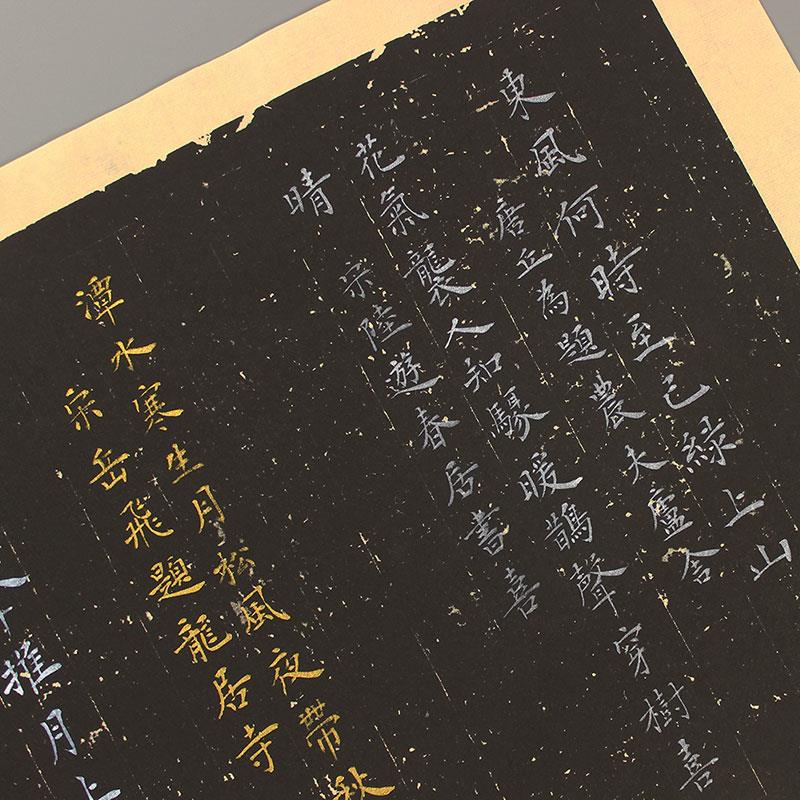 東風何時至已綠上山
唐丘為題農夫廬舍
花氣襲人知驟暖鵲聲穿樹喜
晴 宋陸遊春居書喜
潭水寒生月松風夜帶秋
宋岳飛題龍居寺
推月上